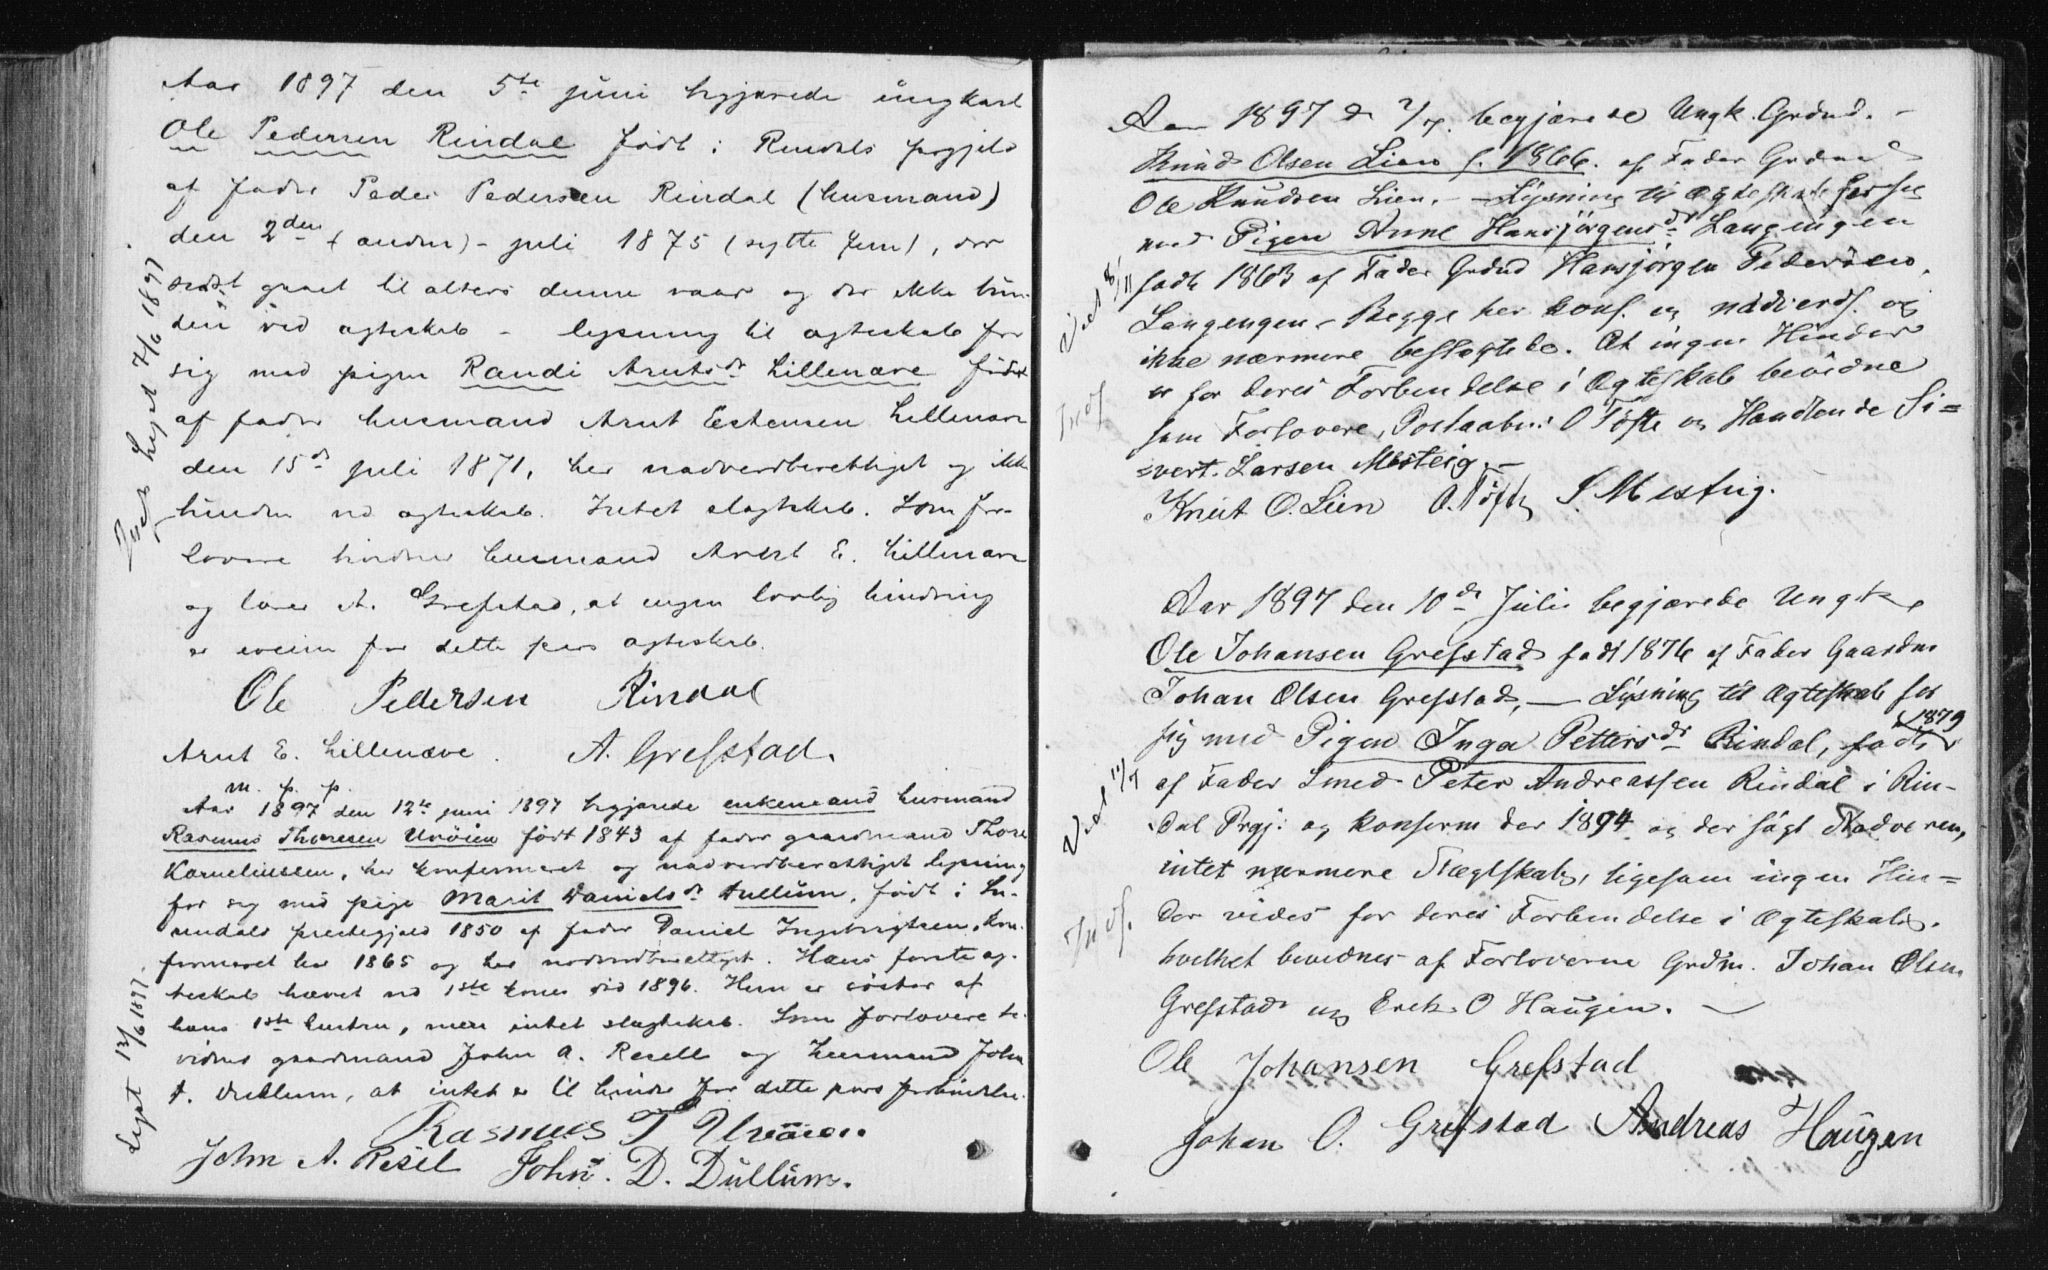 Aar 1897 den 5te juni begjærede ungkarl
Ole Pedersen Rindal født i Rindals prgjeld
af fader Peder Pedersen Rindal (husmand)
den 2den (anden) - juli 1875 (sytti fem), der
sidst gaaet til alters denne vaar og der ikke bun-
den ved ægteskab - lysning til ægteskab for
sig med pigen Randi Arntsdr Lillenæve født
af fader husmand Arnt Estensen Lillenæve
den 15de juli 1871, her nadverdberettiget og ikke
bunden ved ægteskab. Intet slægtskab. Som for-
lovere husmand Arnt E. Lillenæve
og A. Grefstad, at ingen lovlig hindring
er iveien for dette pars ægteskab.
Ole Pedersen Rindal
Arnt E. Lillenæve. A. Grefstad.
m. p. p.
Aar 1897 den 12te juni 1897 begjærede enkemand husmand
Rasmus Thoresen Uvöien født 1843 af fader gaardmand Thore
Korneliussen, her konfirmeret og nadverdberettiget lysning
for sig med pige Marit Danielsdr Dullum, født i Su-
rendals prestegjeld 1850 af fader Daniel Ingebrigtsen, kon-
firmeret her 1865 og her nadverdberettiget. Hans første æg-
teskab hævet ved 1ste kones död 1896. Hun er söster af
hans 1ste hustru, men intet slægtskab. Som forlovere be-
vidner gaardmand John A. Resell og husmand John
D. Dullum, at intet er til hinder for dette pars forbindelse.
Rasmus T Uvöien.
John A. Resell John. D. Dullum.
Lyst 13/6 1897.
Aar 1897 d 2/7. begjærede Ungk. Grdmd. -
Knud Olsen Lien f. 1866. af Fader Grdmd
Ole Knudsen Lien. - Lysning til Ægteskab for sig
med Pigen Anne Hansjörgensdr Langengen
født 1863 af Fader Grdmd Hansjörgen Pedersen
Langengen - Begge her konf. og nadverdb. og
ikke nærmere beslægtede. At ingen Hinder
er for deres Forbindelse i Ægteskab bevidne
som Forlovere, Postaabn: O Töfte og Handlende Si=
=vert. Larsen Mesteig. -
Knut O. Lien O. Töfte S. Mestrig.
Aar 1897 den 10de Juli begjærede Ungk.
Ole Johansen Grefstad født 1876 af Fader Gaardm
Johan Olsen Grefstad, - Lysning til Ægteskab for
sig med Pigen Inga Pettersdr Rindal, født 1879
af Fader Smed Peter Andreassen Rindal i Rin-
dal Prgj. og konfirm der 1894 og der sögt Nadveren,
intet nærmere Slægtskab, ligesom ingen Hin=
der vides for deres Forbindelse i Ægteskab.
hvilket bevidnes af Forloverne Grdm. Johan Olsen
Grefstad og Erik O Haugen. -
Ole Johansen Grefstad
Johan O. Grefstad Andreas Haugen